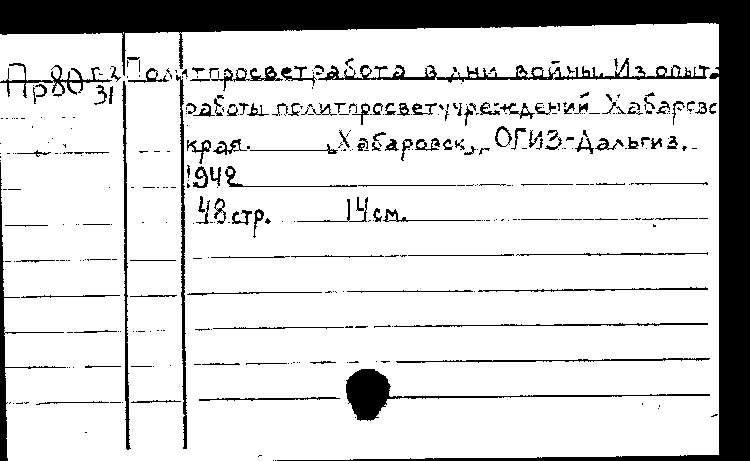 Пр80 г-2/31 Политпросветработа в дни войны. Из опыта
работы политпросветучреждений Хабаровс
края. „Хабаровск„, ОГИЗ-Дальгиз,
1942
48 стр. 14 см.